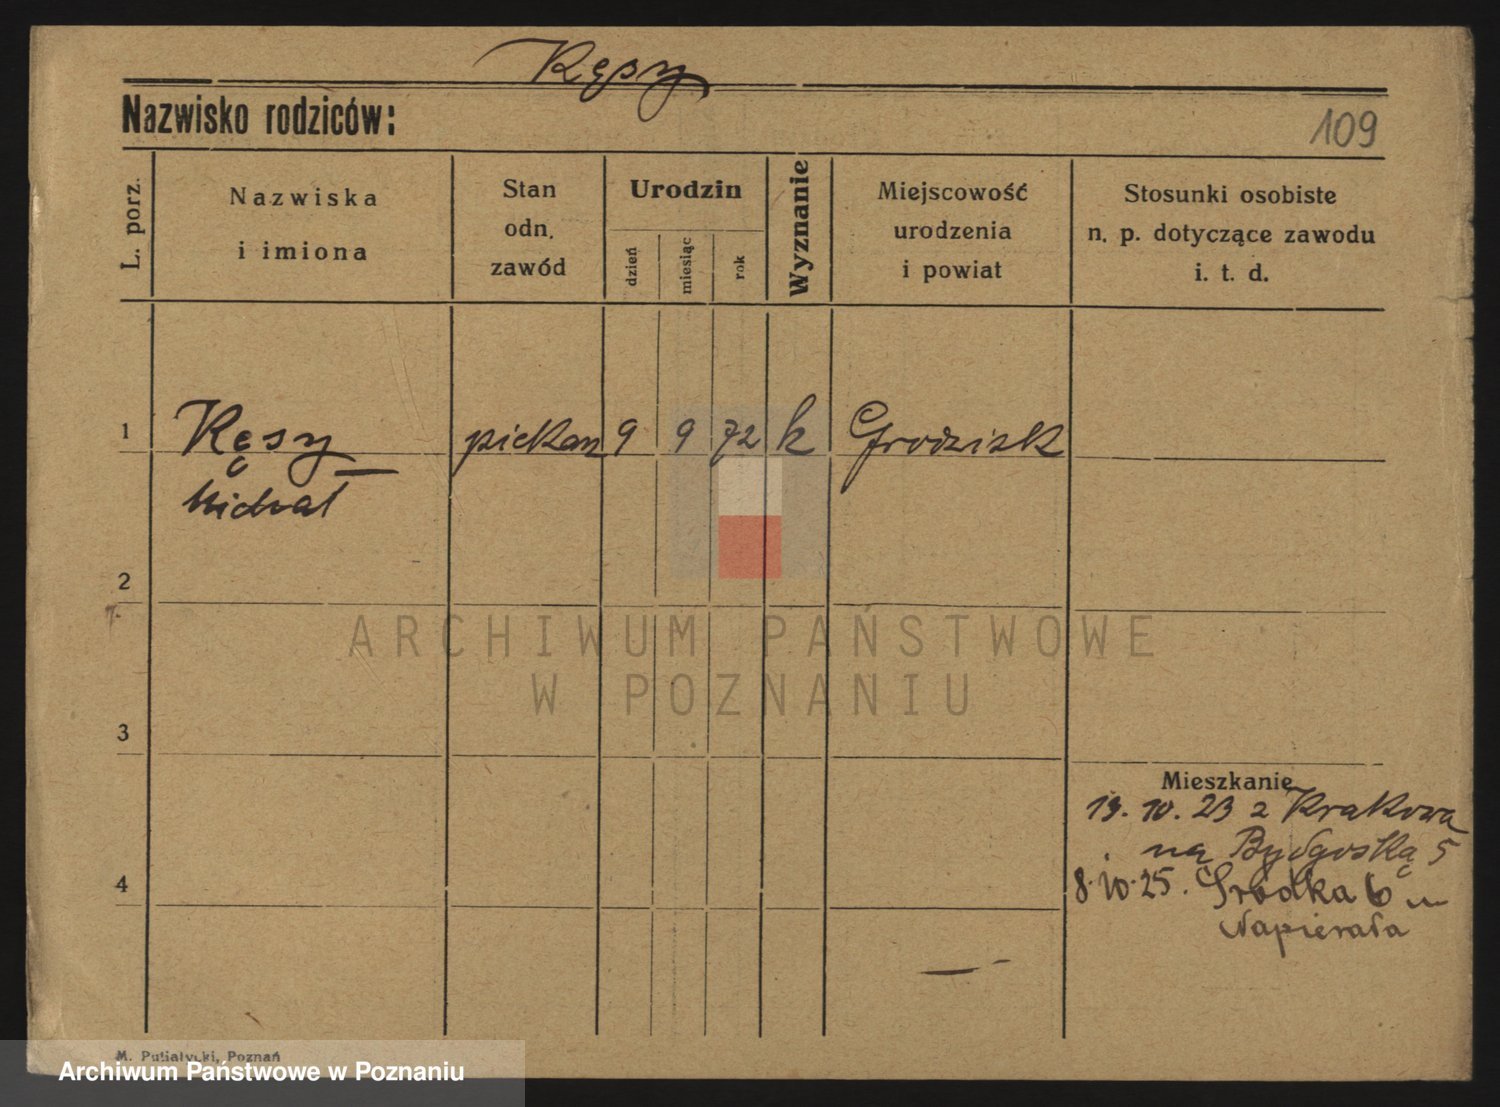 Kęsy
Nazwisko rodziców:
109
L. porz.
Nazwiska
i imiona
Stan
odn.
zawód
Urodzin
dzień
miesiąc
rok
Wyznanie
Miejscowość
urodzenia
i powiat
Stosunki osobiste
n. p. dotyczące zawodu
i. t. d.
1
Kęsy
Michał
piekarz
9
9
72
k
Grodzisk
2
3
4
ARCHIWUM PAŃSTWOWE
W POZNANIU
Mieszkanie
13. 10. 23 z Krakowa
na Bydgoską 5
8.10.25. Śródka 6 u
Napierała
M. Putiatycki, Poznań
Archiwum Państwowe w Poznaniu